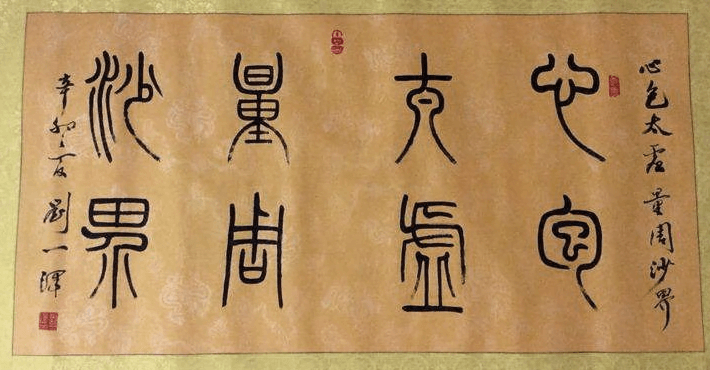 心包太虛量周沙界
心包
太虛
量周
沙界
辛卯之夏劉一暉